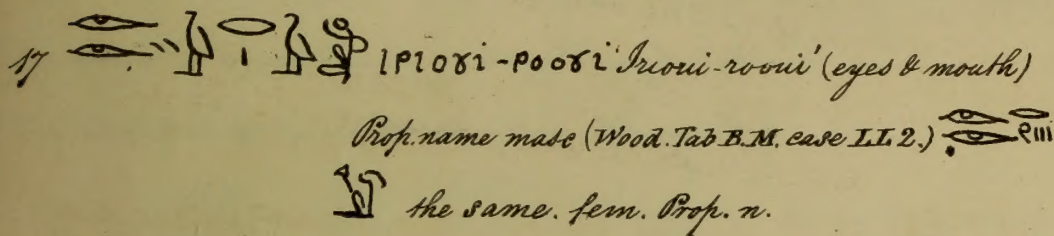 17 𓁹𓁹𓏭𓅱𓂋𓏤𓅱𓀁 ⲓⲣⲓⲟⲩⲓ-ⲣⲟⲟⲩⲓ Iriouï-roouï (eyes & mouth)
Prop. name masc (Wood. Tab B.M. case LL 2.)
the same. fem. Prop. n.